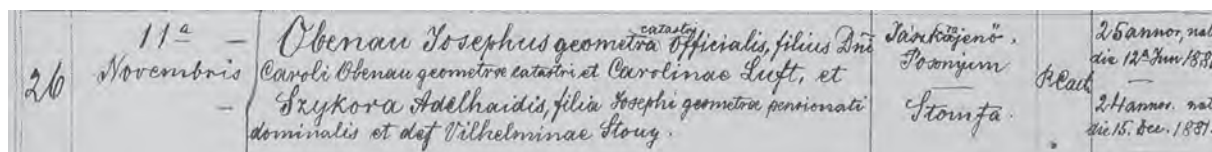 26
11ª —
Novembris
—
Obenau Josephus geometra catastri officialis, filius Dni
Caroli Obenau geometrae catastri et Carolinae Luft, et
Szykora Adelhaidis, filia Josephi geometrae pensionati
dominalis et def Vilhelminae Stouy.
Posonyium
—
Stomfa.
R. Cath
25 annor, nat
die 12ª Jun 188
—
24 annor. nat
die 15. Dec. 1881.